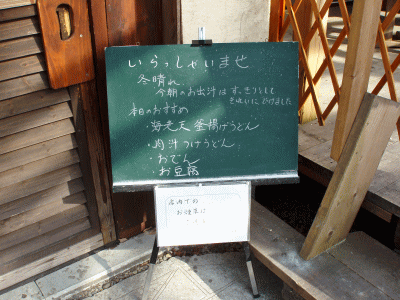 いらっしゃいませ
冬晴れ
今朝のお出汁は すっきりして
きれいに ひけました
本日のおすすめ
・海老天 釜揚げうどん
・肉汁つけうどん
・おでん
・お豆腐
店内での